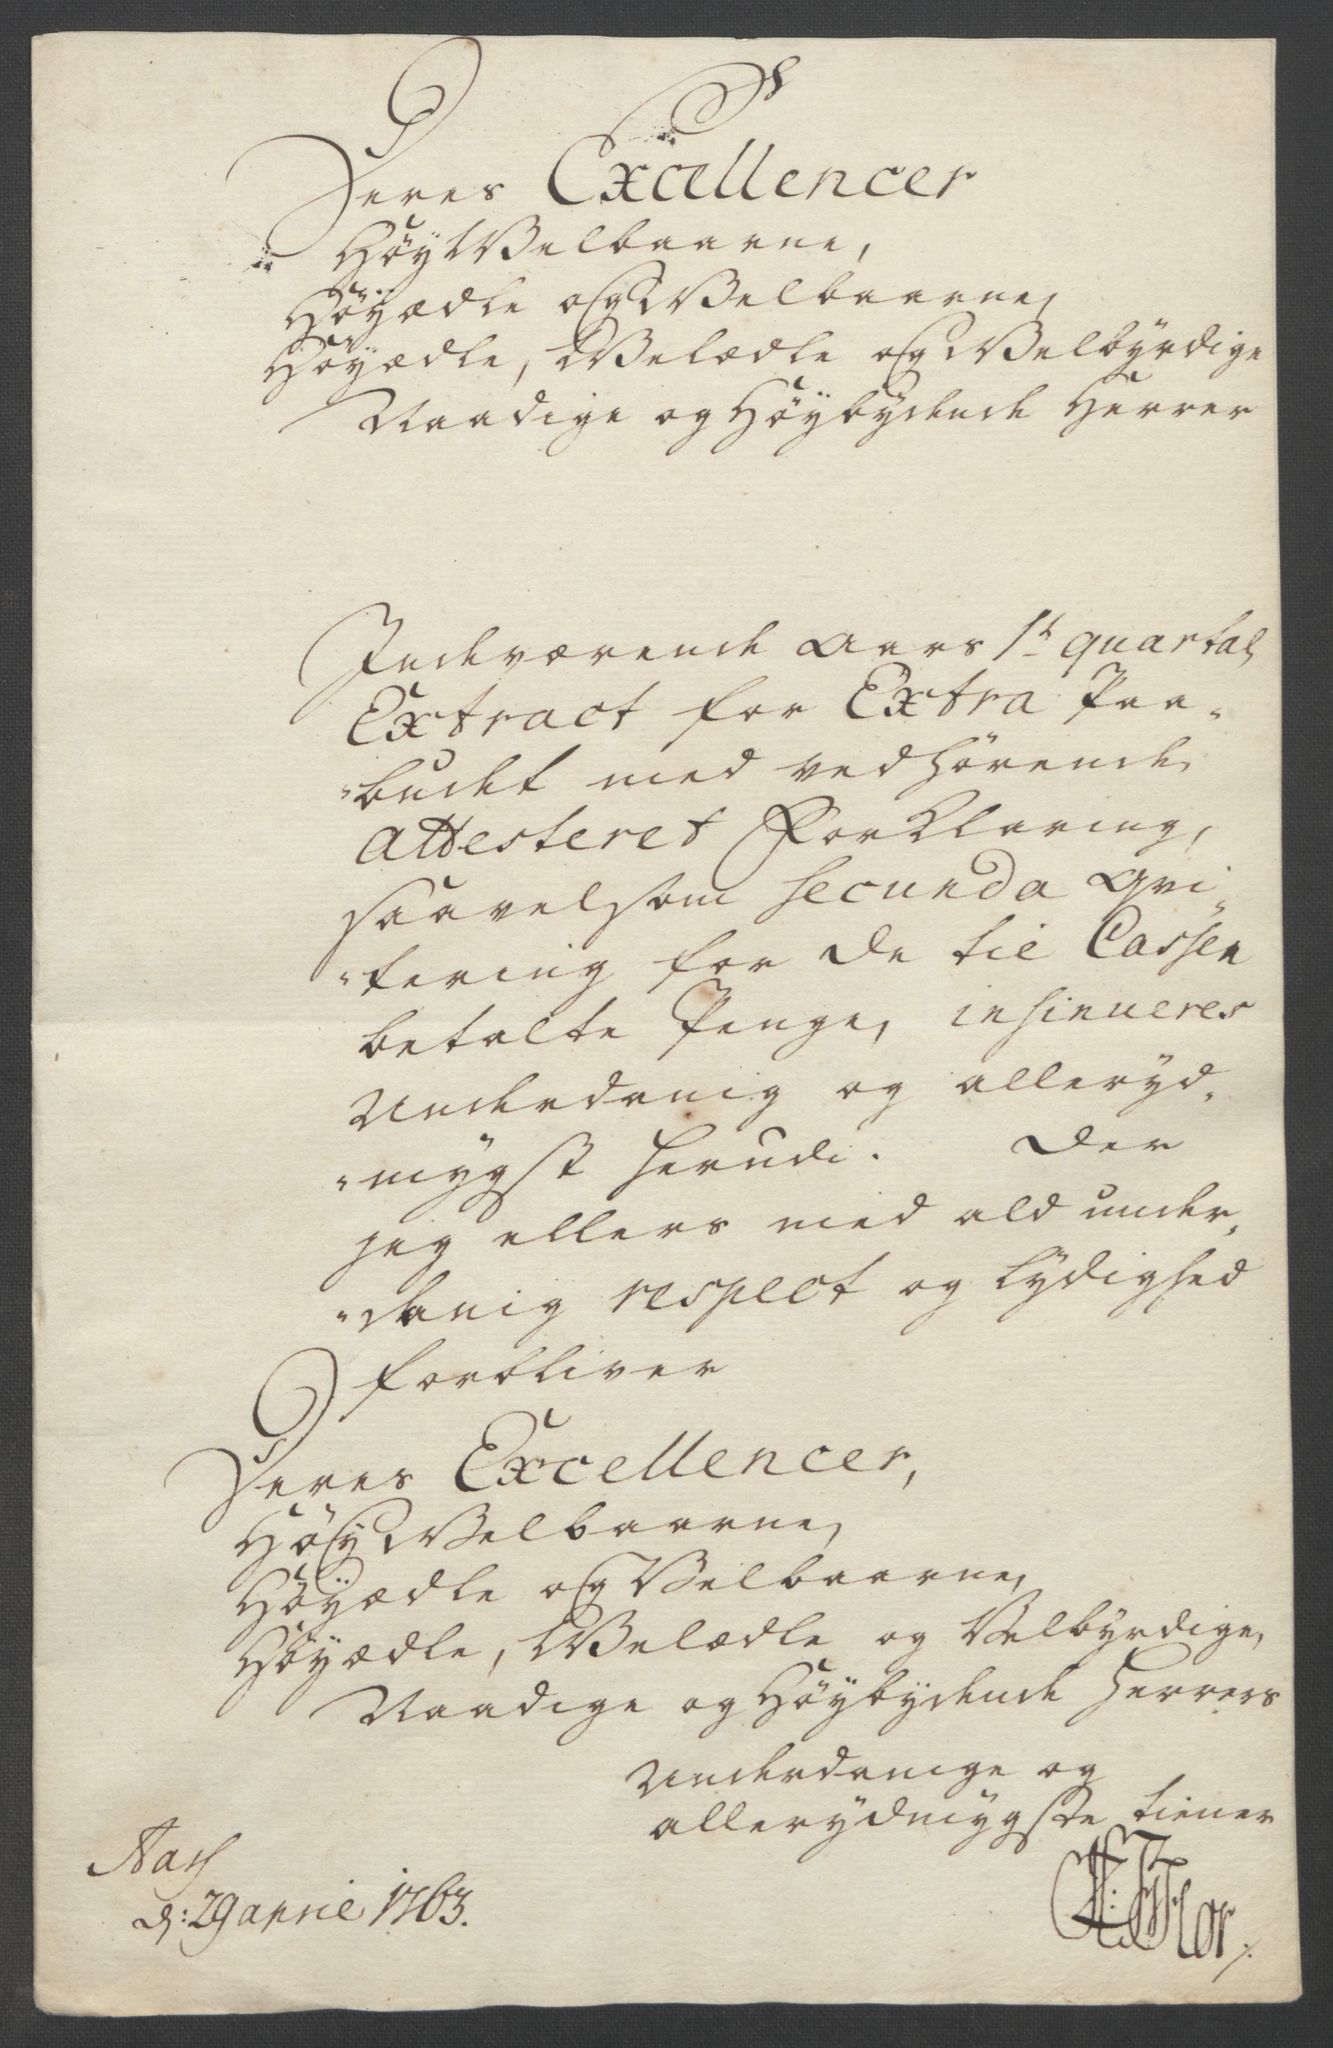 Deres Excellencer
HöyVelbaarne,
Höyædle og Velbaarne,
Höyædle, Velædle og Velbyrdige
Naadige og Höybydende Herrer
Indeværende Aars 1te quartals
Extract for Extra Paa-
-budet med vedhörende
attesteret Forklaring,
saavelsom secunda Qvi-
-tering for de til Cassen
betalte Penge, insinueres
Underdanig og alleryd-
-mygst herudi. Der
jeg ellers med ald under-
-danig respect og lydighed
forbliver
Deres Excellencer,
HöyVelbaarne,
Höyædle og Velbaarne,
Höyædle, Velædle og Velbyrdige,
Naadige og Höybydende Herrers
Underdanige og
allerydmygste tiener
Aas
d: 29 april 1763.
Flor